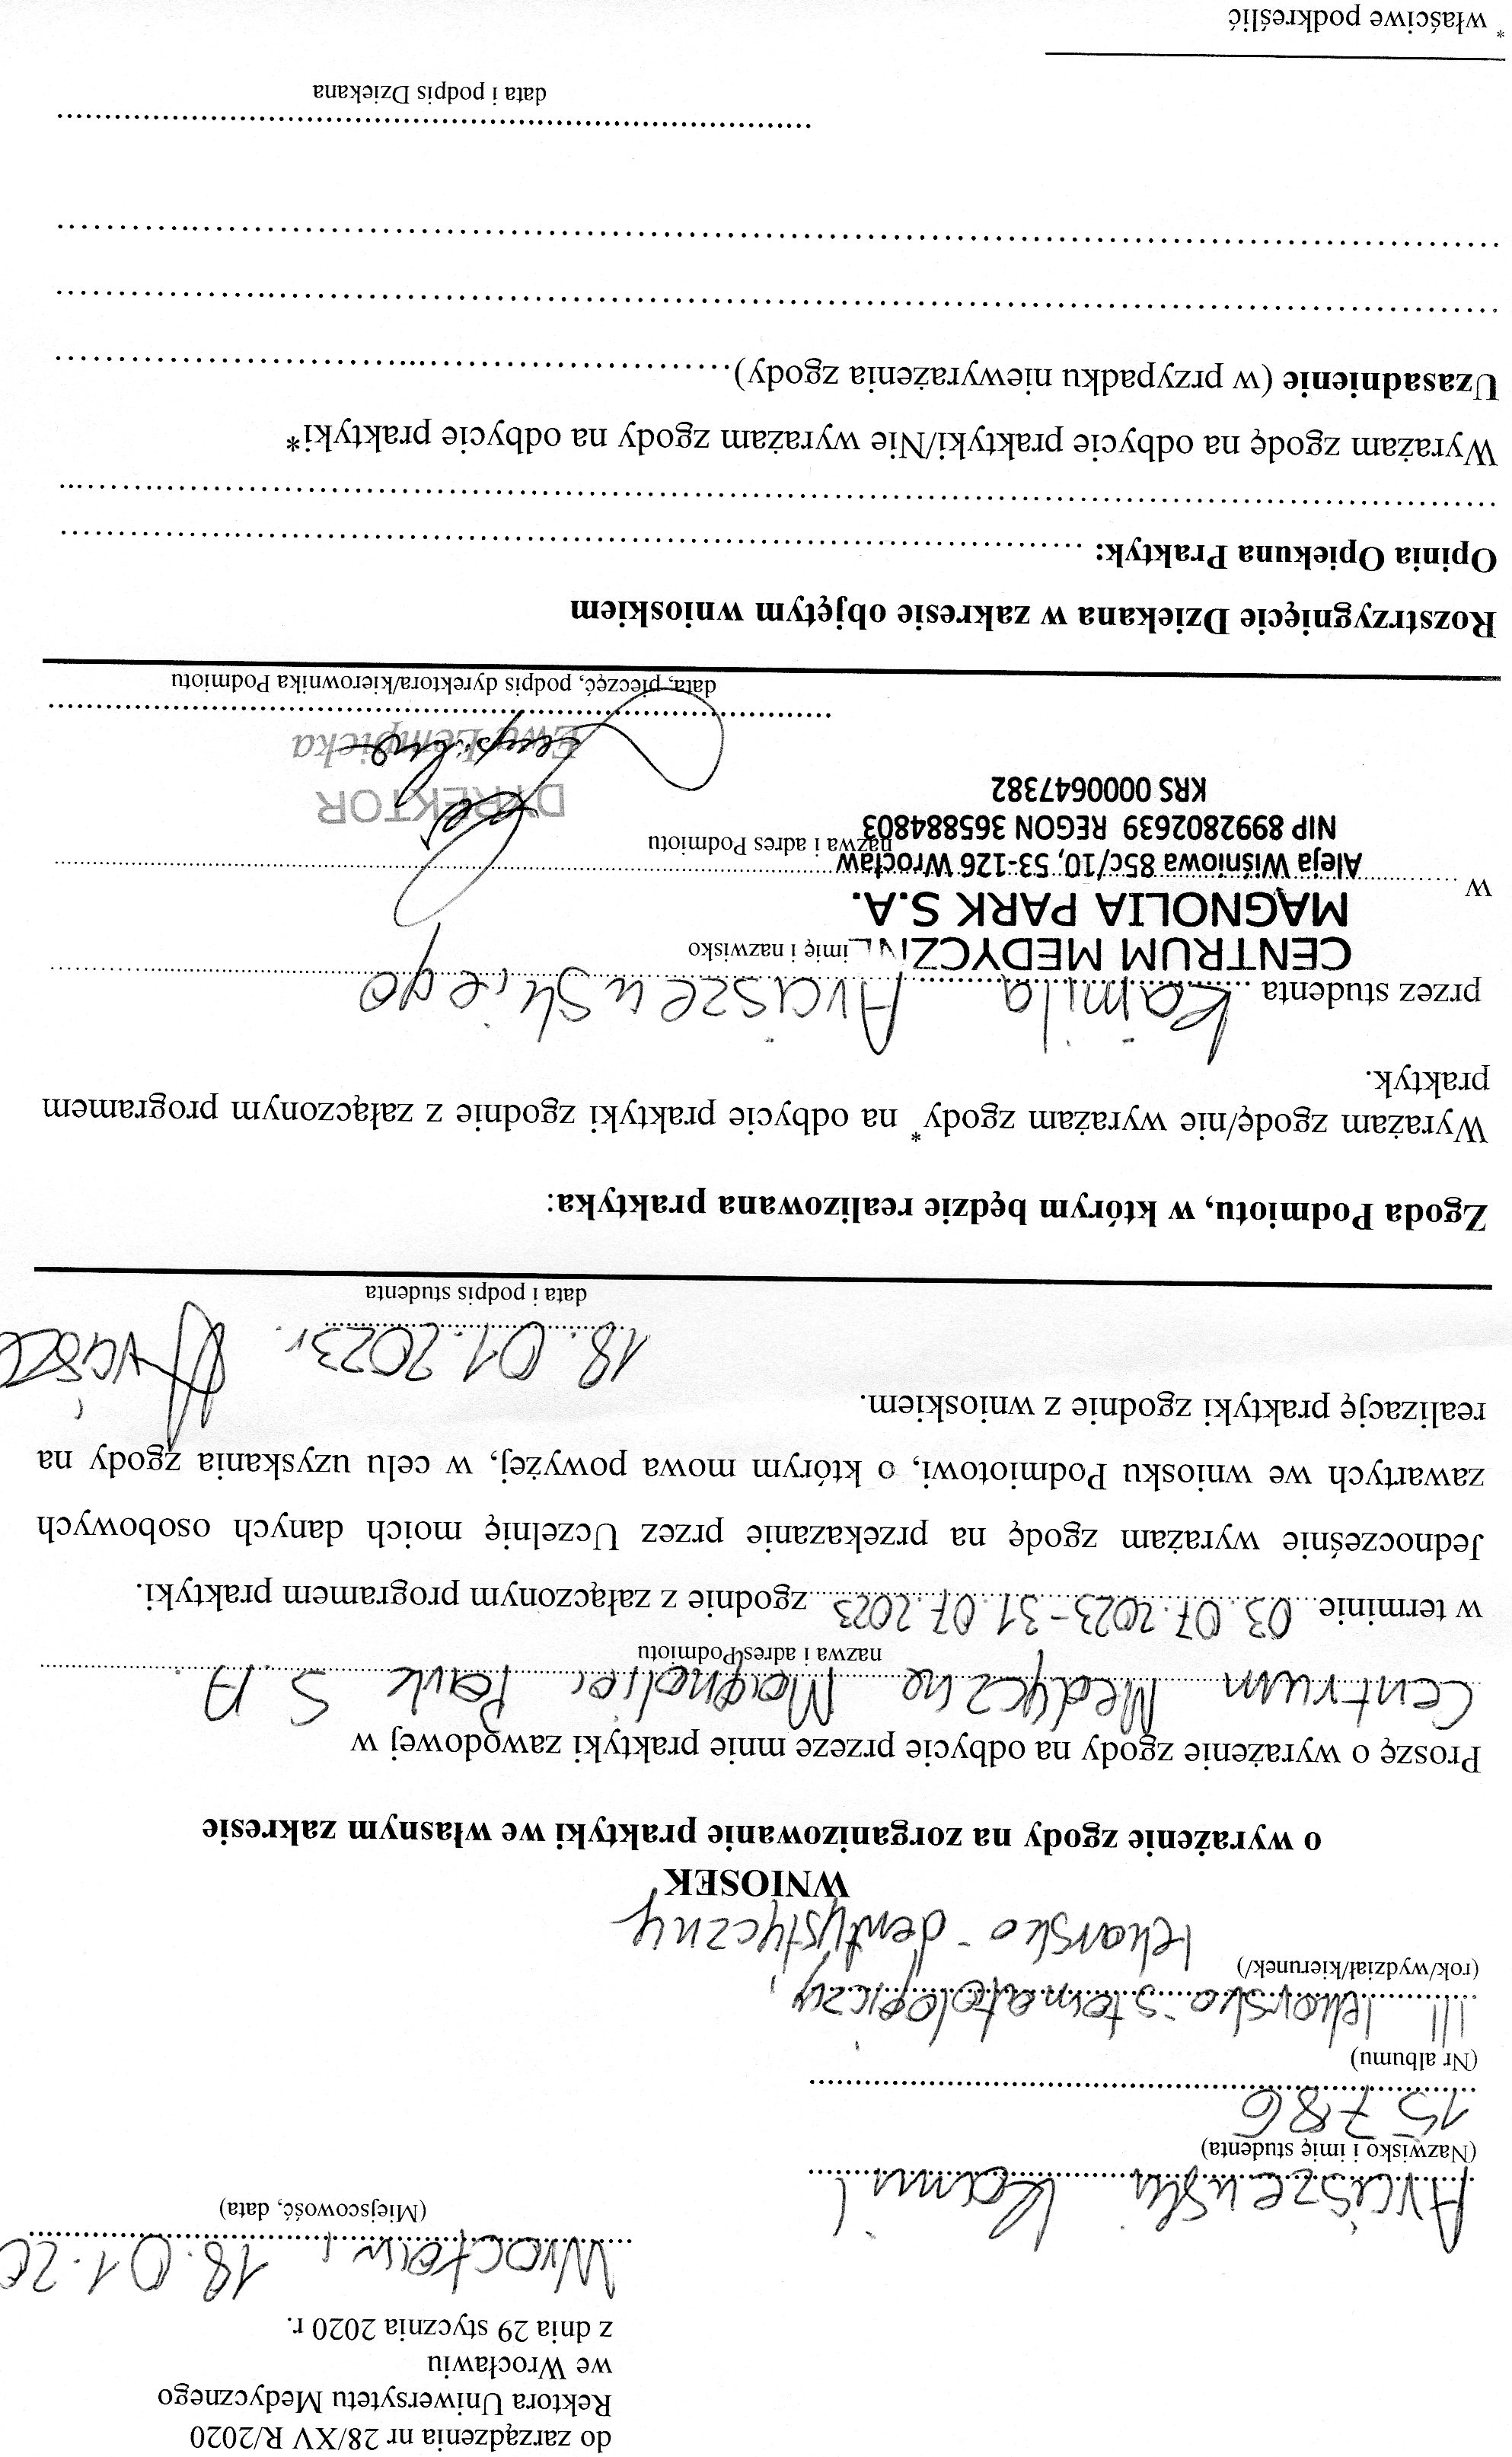 do zarządzenia nr 28/XV R/2020
Rektora Uniwersytetu Medycznego
we Wrocławiu
z dnia 29 stycznia 2020 r.
Wrocław, 18.01.20
(Miejscowość, data)
Arciszewski Kamil
(Nazwisko i imię studenta)
15786
(Nr albumu)
III lekarsko-stomatologiczy,
(rok/wydział/kierunek/)
lekarsko-dentystyczny
WNIOSEK
o wyrażenie zgody na zorganizowanie praktyki we własnym zakresie
Proszę o wyrażenie zgody na odbycie przeze mnie praktyki zawodowej w
Centrum Medyczne Magnolia Park S.A.
nazwa i adres Podmiotu
w terminie 03.07.2023-31.07.2023 zgodnie z załączonym programem praktyki.
Jednocześnie wyrażam zgodę na przekazanie przez Uczelnię moich danych osobowych
zawartych we wniosku Podmiotowi, o którym mowa powyżej, w celu uzyskania zgody na
realizację praktyki zgodnie z wnioskiem.
18.01.2023r. Arcisze
data i podpis studenta
Zgoda Podmiotu, w którym będzie realizowana praktyka:
Wyrażam zgodę/nie wyrażam zgody* na odbycie praktyki zgodnie z załączonym programem
praktyk.
przez studenta Kamila Arciszewskiego
imię i nazwisko
CENTRUM MEDYCZNE
MAGNOLIA PARK S.A.
w
Aleja Wiśniowa 85c/10, 53-126 Wrocław
nazwa i adres Podmiotu
NIP 8992802639 REGON 365884803
KRS 0000647382
DYREKTOR
Ewa Łempicka
data, pieczęć, podpis dyrektora/kierownika Podmiotu
Rozstrzygnięcie Dziekana w zakresie objętym wnioskiem
Opinia Opiekuna Praktyk:
Wyrażam zgodę na odbycie praktyki/Nie wyrażam zgody na odbycie praktyki*
Uzasadnienie (w przypadku niewyrażenia zgody)
data i podpis Dziekana
* właściwe podkreślić